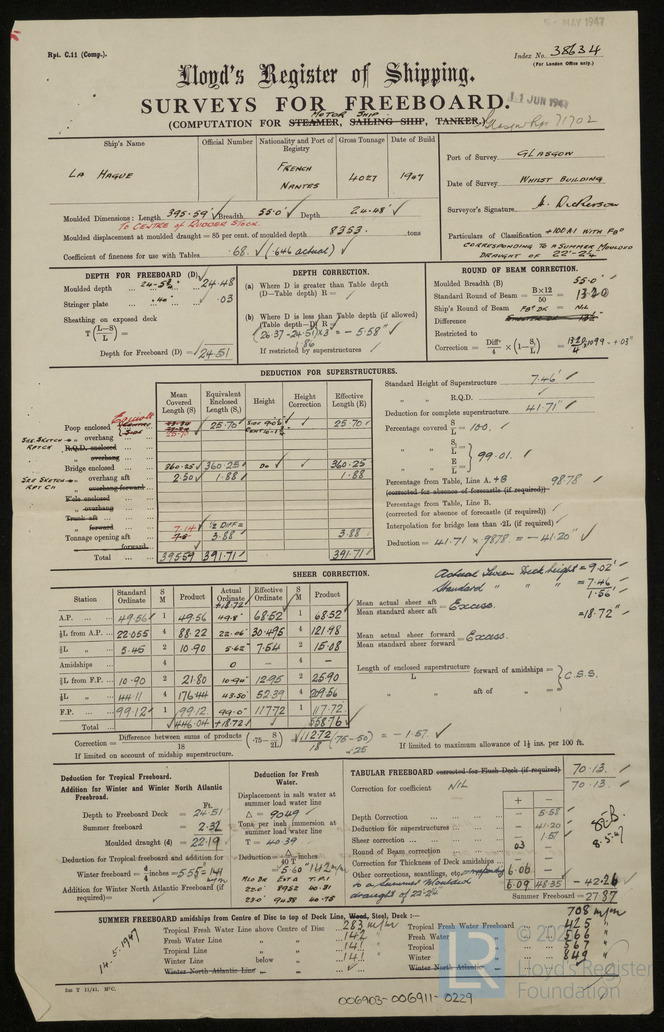 5 - MAY 1947
Rpt. C.11 (Comp.).
Index No. 38634
(For London Office only.)
Lloyd's Register of Shipping.
SURVEYS FOR FREEBOARD.
11 JUN 1947
(COMPUTATION FOR STEAMER, SAILING SHIP, TANKER.)
MOTOR SHIP
Glasgow Rpt 71702
Ship's Name
Official Number
Nationality and Port of Registry
Gross Tonnage
Date of Build
LA HAGUE
FRENCH
NANTES
4027
1947
Port of Survey GLASGOW
Date of Survey WHILST BUILDING
Surveyor's Signature A. Dickerson
Particulars of Classification +100A1 WITH FBD
CORRESPONDING TO A SUMMER MOULDED
DRAUGHT OF 22'-2¼"
Moulded Dimensions: Length 395.59' Breadth 55.0' Depth 24.48'
TO CENTRE OF RUDDER STOCK
Moulded displacement at moulded draught = 85 per cent. of moulded depth 8353. tons
Coefficient of fineness for use with Tables .68. (.646 actual)
DEPTH FOR FREEBOARD (D)
Moulded depth ... 24.48
Stringer plate ... .40" .03
Sheathing on exposed deck
T(L-S/L) =
Depth for Freeboard (D) = 24.51
DEPTH CORRECTION.
(a) Where D is greater than Table depth
(D-Table depth) R =
(b) Where D is less than Table depth (if allowed)
(Table depth-D) R =
(26.37-24.51) x 3" = - 5.58"
1.86
If restricted by superstructures
ROUND OF BEAM CORRECTION.
Moulded Breadth (B) 55.0'
Standard Round of Beam = B×12/50 = 13.20
Ship's Round of Beam FBD DK = NIL
Difference
Restricted to
Correction = Diff/4 × (1-S₁/L) =
+.03"
DEDUCTION FOR SUPERSTRUCTURES.
Mean Covered Length (S)
Equivalent Enclosed Length (S₁)
Height
Height Correction
Effective Length (E)
Poop enclosed 25.70 25.70
SEE SKETCH → overhang
R.Q.D. enclosed
" overhang
Bridge enclosed 360.25 360.25 Do 360.25
SEE SKETCH → " overhang aft 2.50 1.88 1.88
" overhang forward
F'cle enclosed
" overhang
Trunk aft
" forward
Tonnage opening aft 7.14 ½ DIFF = 3.88 3.88
" forward
Total 395.59 391.71 391.71
Standard Height of Superstructure 7.46'
" " R.Q.D.
Deduction for complete superstructure 41.71"
Percentage covered S/L = 100.
" " S₁/L
" " E/L = 99.01.
Percentage from Table, Line A. +B 98.78
(corrected for absence of forecastle (if required))
Percentage from Table, Line B.
(corrected for absence of forecastle (if required))
Interpolation for bridge less than ·2L (if required)
Deduction = 41.71 × .9878 = - 41.20"
SHEER CORRECTION.
Station
Standard Ordinate
S M
Product
Actual Ordinate +18.72
Effective Ordinate
S M
Product
A.P. 49.56 1 49.56 49.8" 68.52 1 68.52
⅙L from A.P. 22.055 4 88.22 22.06" 30.495 4 121.98
⅓L " 5.45 2 10.90 5.62" 7.54 2 15.08
Amidships 4 0 - 4 -
⅓L from F.P. 10.90 2 21.80 10.94" 12.95 2 25.90
⅙L " 44.11 4 176.44 43.50" 52.39 4 209.56
F.P. 99.12 1 99.12 99.0" 117.72 1 117.72
Total 446.04 +18.72 558.76
Actual Tween Deck height = 9.02'
Standard " " " = 7.46
1.56'
=18.72"
Mean actual sheer aft
Mean standard sheer aft = Excess.
Mean actual sheer forward
Mean standard sheer forward = Excess.
Length of enclosed superstructure forward of amidships =
L
" " aft of " =
C.S.S.
Correction = Difference between sums of products/18 (·75-S/2L) = 112.72/18 (.75-.50) .25 = - 1.57.
If limited on account of midship superstructure.
If limited to maximum allowance of 1½ ins. per 100 ft.
Deduction for Tropical Freeboard.
Addition for Winter and Winter North Atlantic Freeboard.
Ft.
Depth to Freeboard Deck = 24.51
Summer freeboard = 2.32
Moulded draught (d) = 22.19
Deduction for Tropical freeboard and addition for
Winter freeboard = d/4 inches = 5.55" = 141 m/m
Addition for Winter North Atlantic Freeboard (if required) =
Deduction for Fresh Water.
Displacement in salt water at summer load water line
Δ = 9049
Tons per inch immersion at summer load water line
T = 40.39
Deduction = Δ/40 T inches
= 5.60" 142 m/m
MLD DK EXT Δ T.P.I
22.0' 8952 40.31
23.0' 9438 40.75
TABULAR FREEBOARD corrected for Flush Deck (if required) 70.13.
Correction for coefficient NIL 70.13.
+ -
Depth Correction 5.58
Deduction for superstructures 41.20
Sheer correction 1.57
Round of Beam correction .03
Correction for Thickness of Deck amidships
Other corrections, scantlings, etc. 6.06
to a Summer Moulded
draught of 22'-2¼"
6.09 48.35 - 42.26
Summer Freeboard = 27.87
8.5.47
SUMMER FREEBOARD amidships from Centre of Disc to top of Deck Line, Wood, Steel, Deck :— 708 m/m
Tropical Fresh Water Line above Centre of Disc 283 m/m
Fresh Water Line " " 142 "
Tropical Line " " 141 "
Winter Line below " " 141 "
Winter North Atlantic Line " "
Tropical Fresh Water Freeboard 425 "
Fresh Water " 566 "
Tropical " 567 "
Winter " 849 "
Winter North Atlantic "
14-5-1947
LR
Lloyd's Register
Foundation
006903-006911-0229